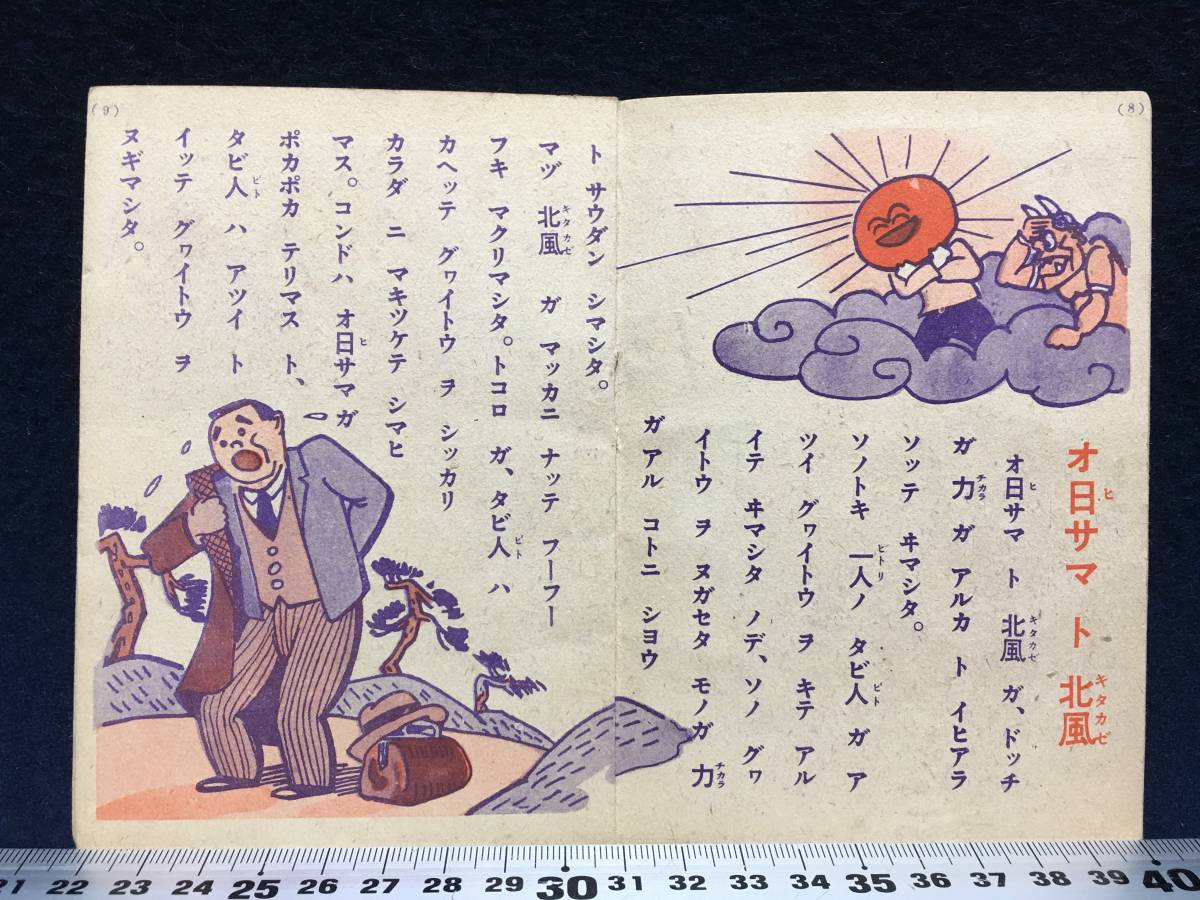 (8)
オ日サマ ト 北風
ヒ
キタカゼ
オ日サマ ト 北風 ガ、ドッチ
ヒ
キタカゼ
ガ 力 ガ アルカ ト イヒアラ
チカラ
ソッテ ヰマシタ。
ソノトキ 一人ノ タビ人 ガ ア
ヒトリ
ビト
ツイ グヮイトウ ヲ キテ アル
イテ ヰマシタ ノデ、ソノ グヮ
イトウ ヲ ヌガセタ モノガ 力
チカラ
ガアル コトニ ショウ
(9)
ト サウダン シマシタ。
マヅ 北風 ガ マッカニ ナッテ フーフー
キタカゼ
フキ マクリマシタ。トコロ ガ、タビ人 ハ
ビト
カヘッテ グヮイトウ ヲ シッカリ
カラダ ニ マキツケテ シマヒ
マス。コンドハ オ日サマ ガ
ヒ
ポカポカ テリマス ト、
タビ人 ハ アツイ ト
ビト
イッテ グヮイトウ ヲ
ヌギマシタ。
21 22 23 24 25 26 27 28 29 30 31 32 33 34 35 36 37 38 39 40